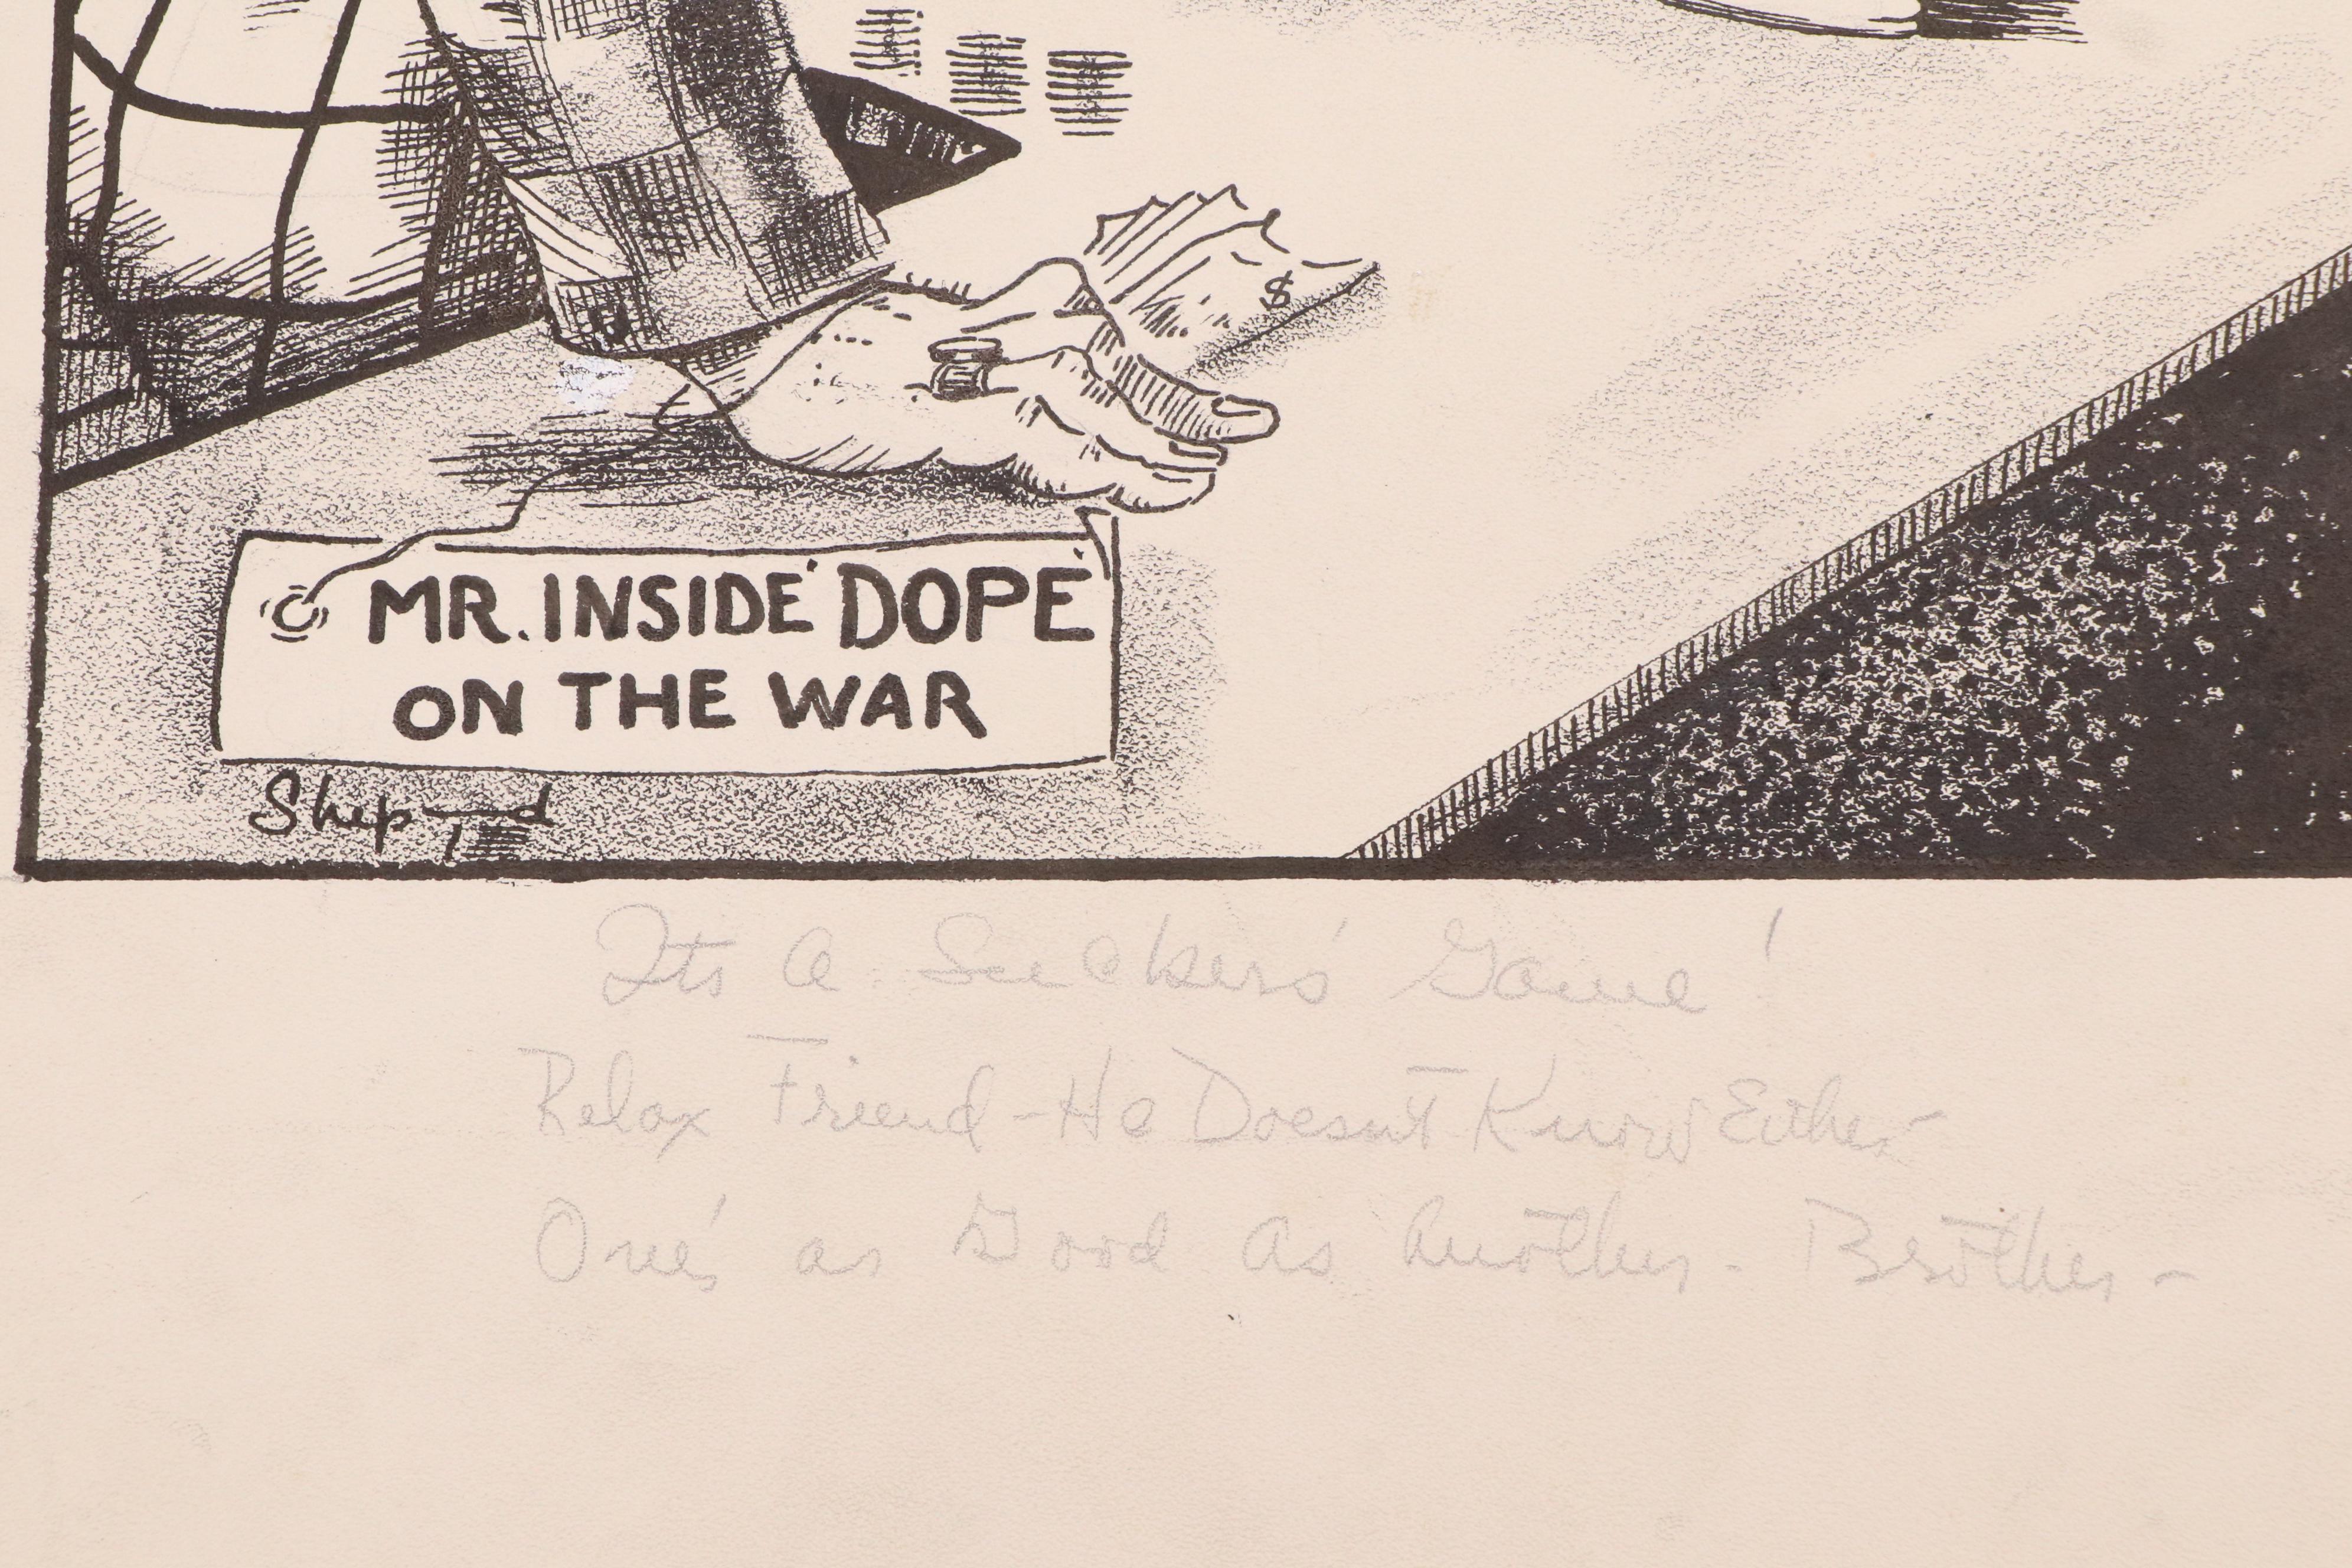 $
MR. INSIDE "DOPE"
ON THE WAR
Shepard
Its A Suckers' Game!
Relax Friend - He Doesn't Know Either -
One's as Good As Another - Brother -